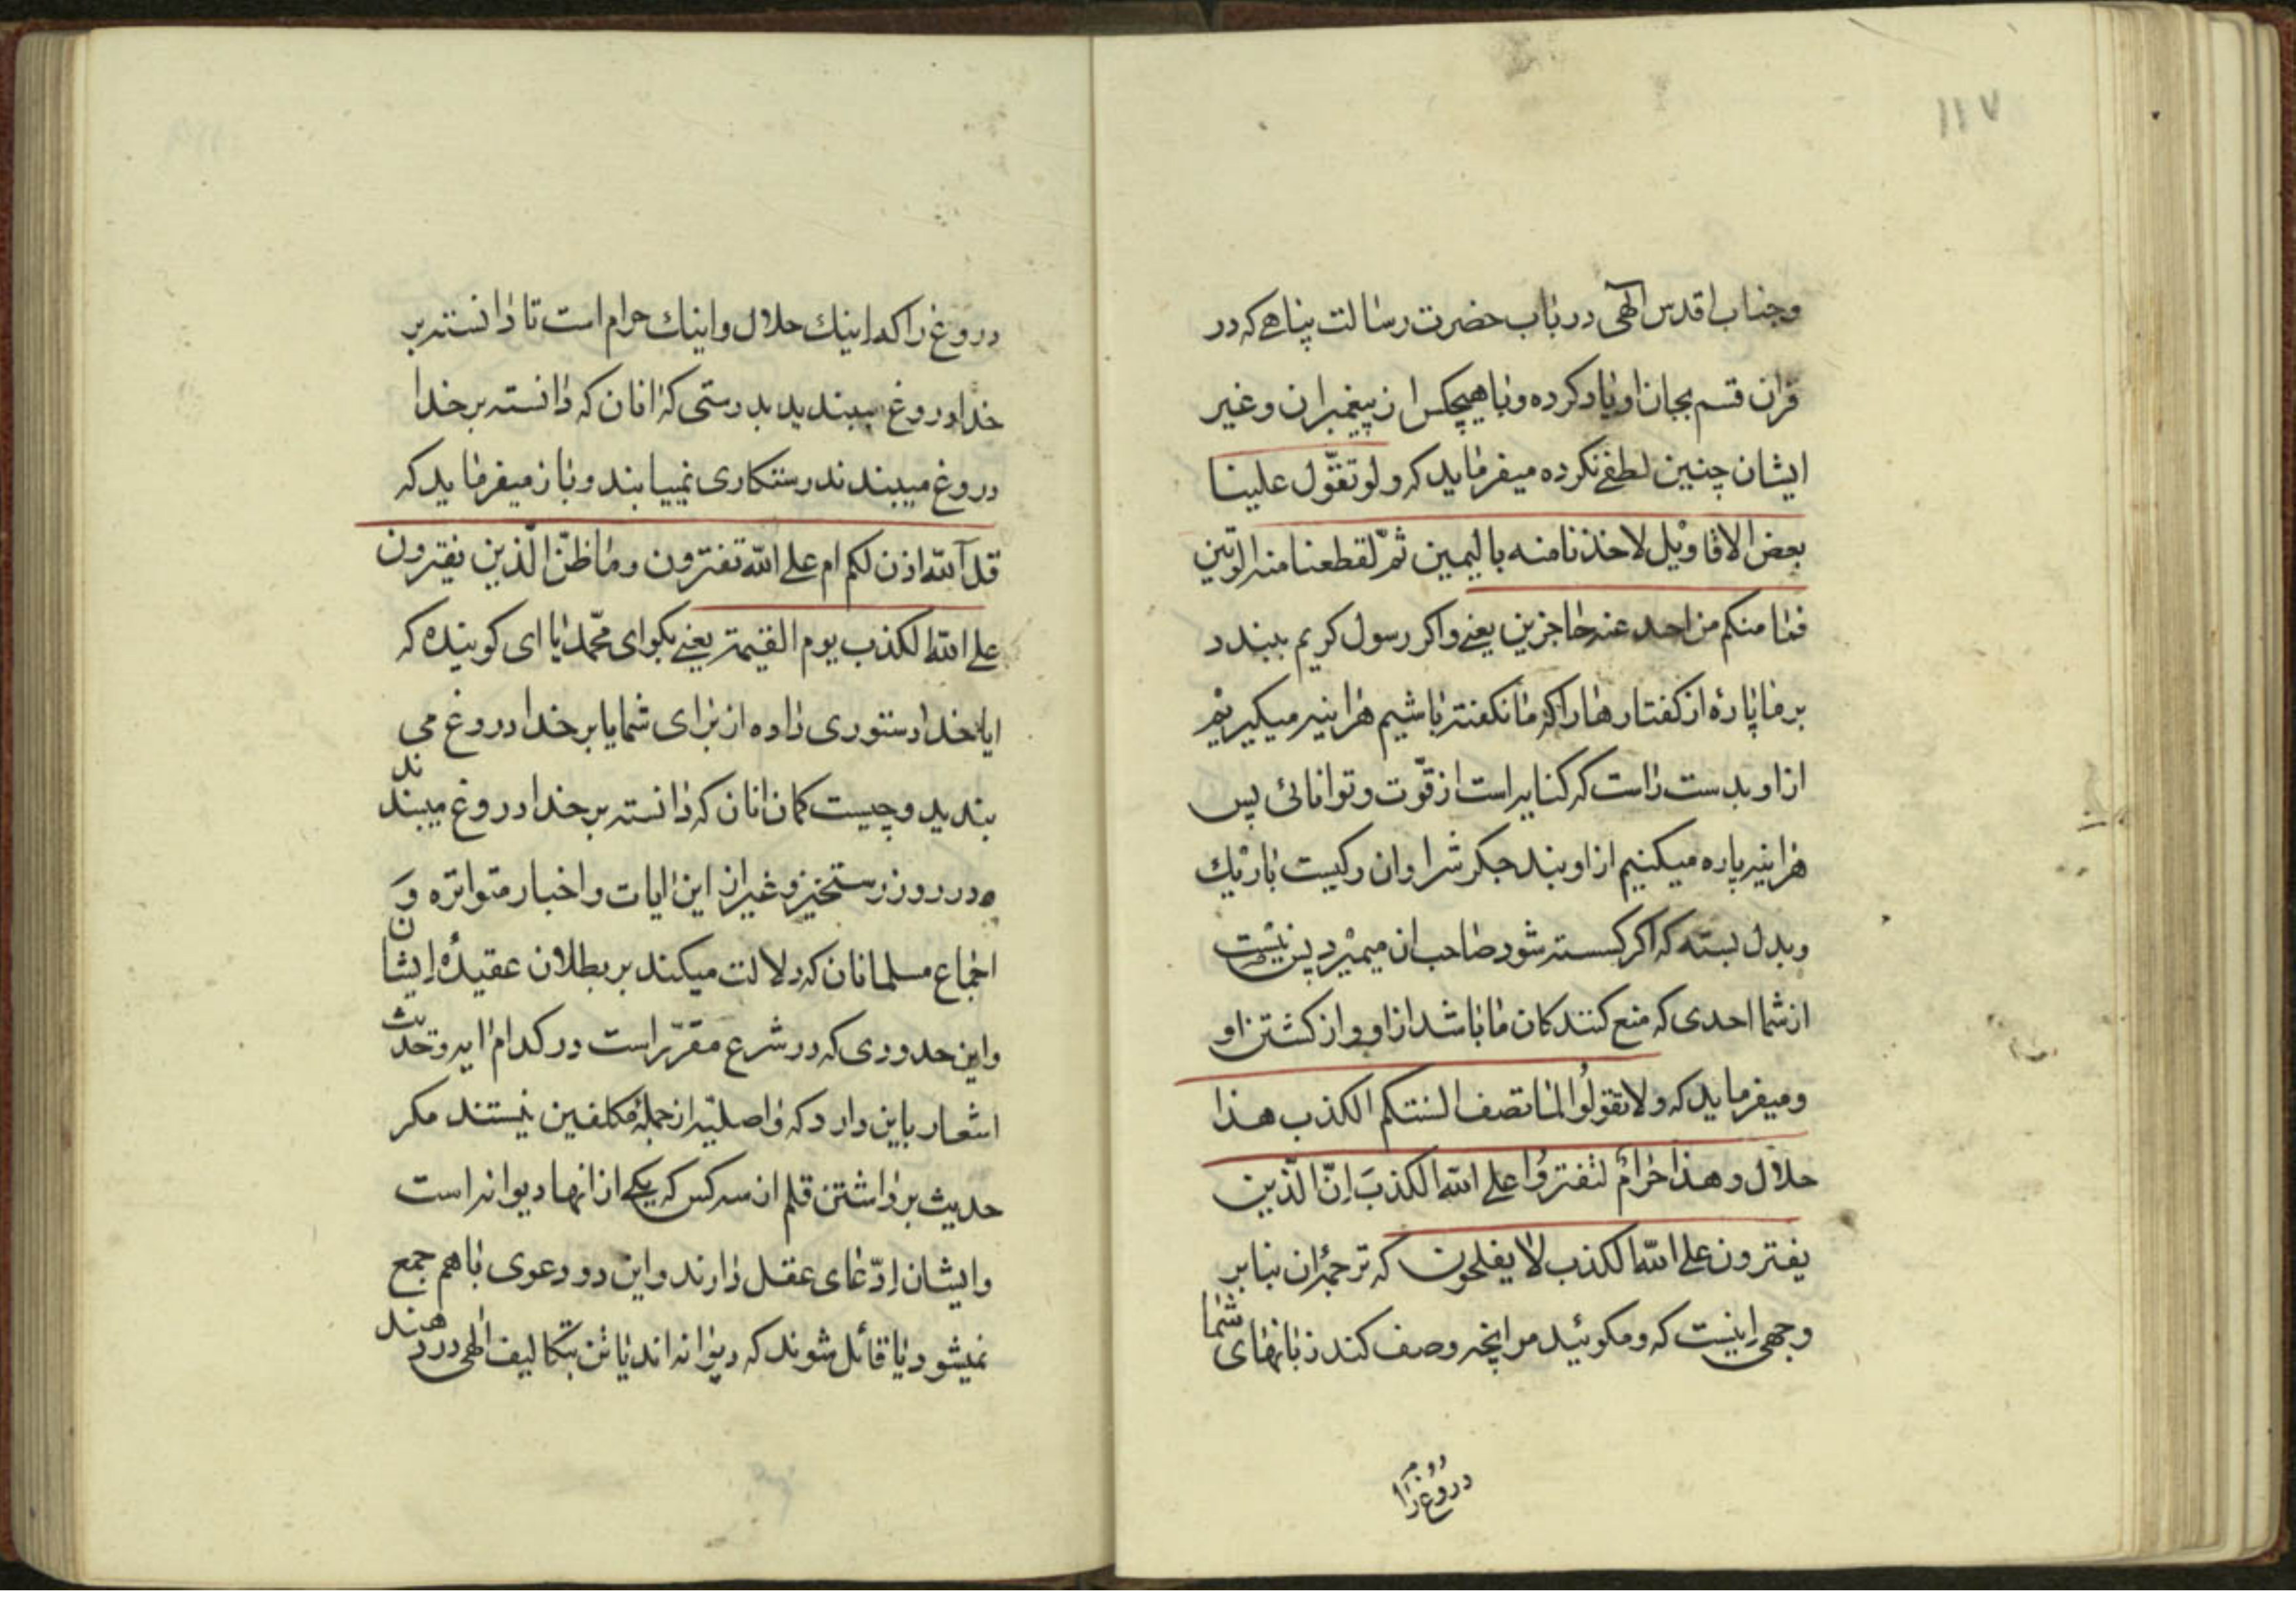 ۱۱۷
وجناب اقدس الٓهی در باب حضرت رسالت پناهی که در
قران قسم بجان او یاد کرده و با هیچکس از پیغمبران و غیر
ایشان چنین لطفی نکرده میفرماید که ولو تقوّل علینا
بعض الاقاویل لاخذنا منه بالیمین ثمّ لقطعنا منه الوتین
فما منکم من احد عنه حاجزین یعنی واکر رسول کریم ببندد
بر ما پارهٔ از کفتارها را که ما نکفته باشیم هراینه میکیریم
از او بدست راست که کنایه است از قوّت و توانائی پس
هراینه پاره میکنیم از او بند جکرش را و ان رکیست باریك
وبدل بسته که اکر کسسته شود صاحب ان میمیرد پس نیست
از شما احدی که منع کنندکان ما باشد از او و از کشتن او
ومیفرماید که ولا تقولُوا لما تصف السنتکم الکذب هذا
حلال وهذا حرامٌ لتفترُوا علی الله الکذبَ اِنّ الّذین
یفترون علی الله الکذب لا یفلحون که ترجمهٔ ان بنابر
وجهی اینست که ومکوئید مر انچه وصف کند زبانهای شما
دروغ را
دروغ را که اینك حلال و اینك حرام است تا دانسته بر
خدا دروغ ببندید بدرستی که انان که دانسته بر خدا
دروغ میبندند رستکاری نمییابند و باز میفرماید که
قل آلله اذن لکم ام علی الله تفترون وما ظنّ الّذین یفترون
علی الله الکذب یوم القیمة یعنی بکو ای محمّد یا ای کوینده که
ایا خدا دستوری داده از برای شما یا بر خدا دروغ می
بندید و چیست کمان انان که دانسته بر خدا دروغ میبندند
در روز رستخیز و غیر از این ایات و اخبار متواتره وَ
اجماع مسلمانان که دلالت میکند بر بطلان عقیدهٔ ایشان
واین حدودی که در شرع مقرّر است در کدام ایه و حدیث
اشعار باین دارد که واصلیّه از جملهٔ مکلفین نیستند مکر
حدیث برداشتن قلم از سه کس که یکی از انها دیوانه است
وایشان ادّعای عقل دارند و این دو دعوی با هم جمع
نمیشود یا قائل شوند که دیوانه اند یا تن بتکالیف الٓهی در دهند